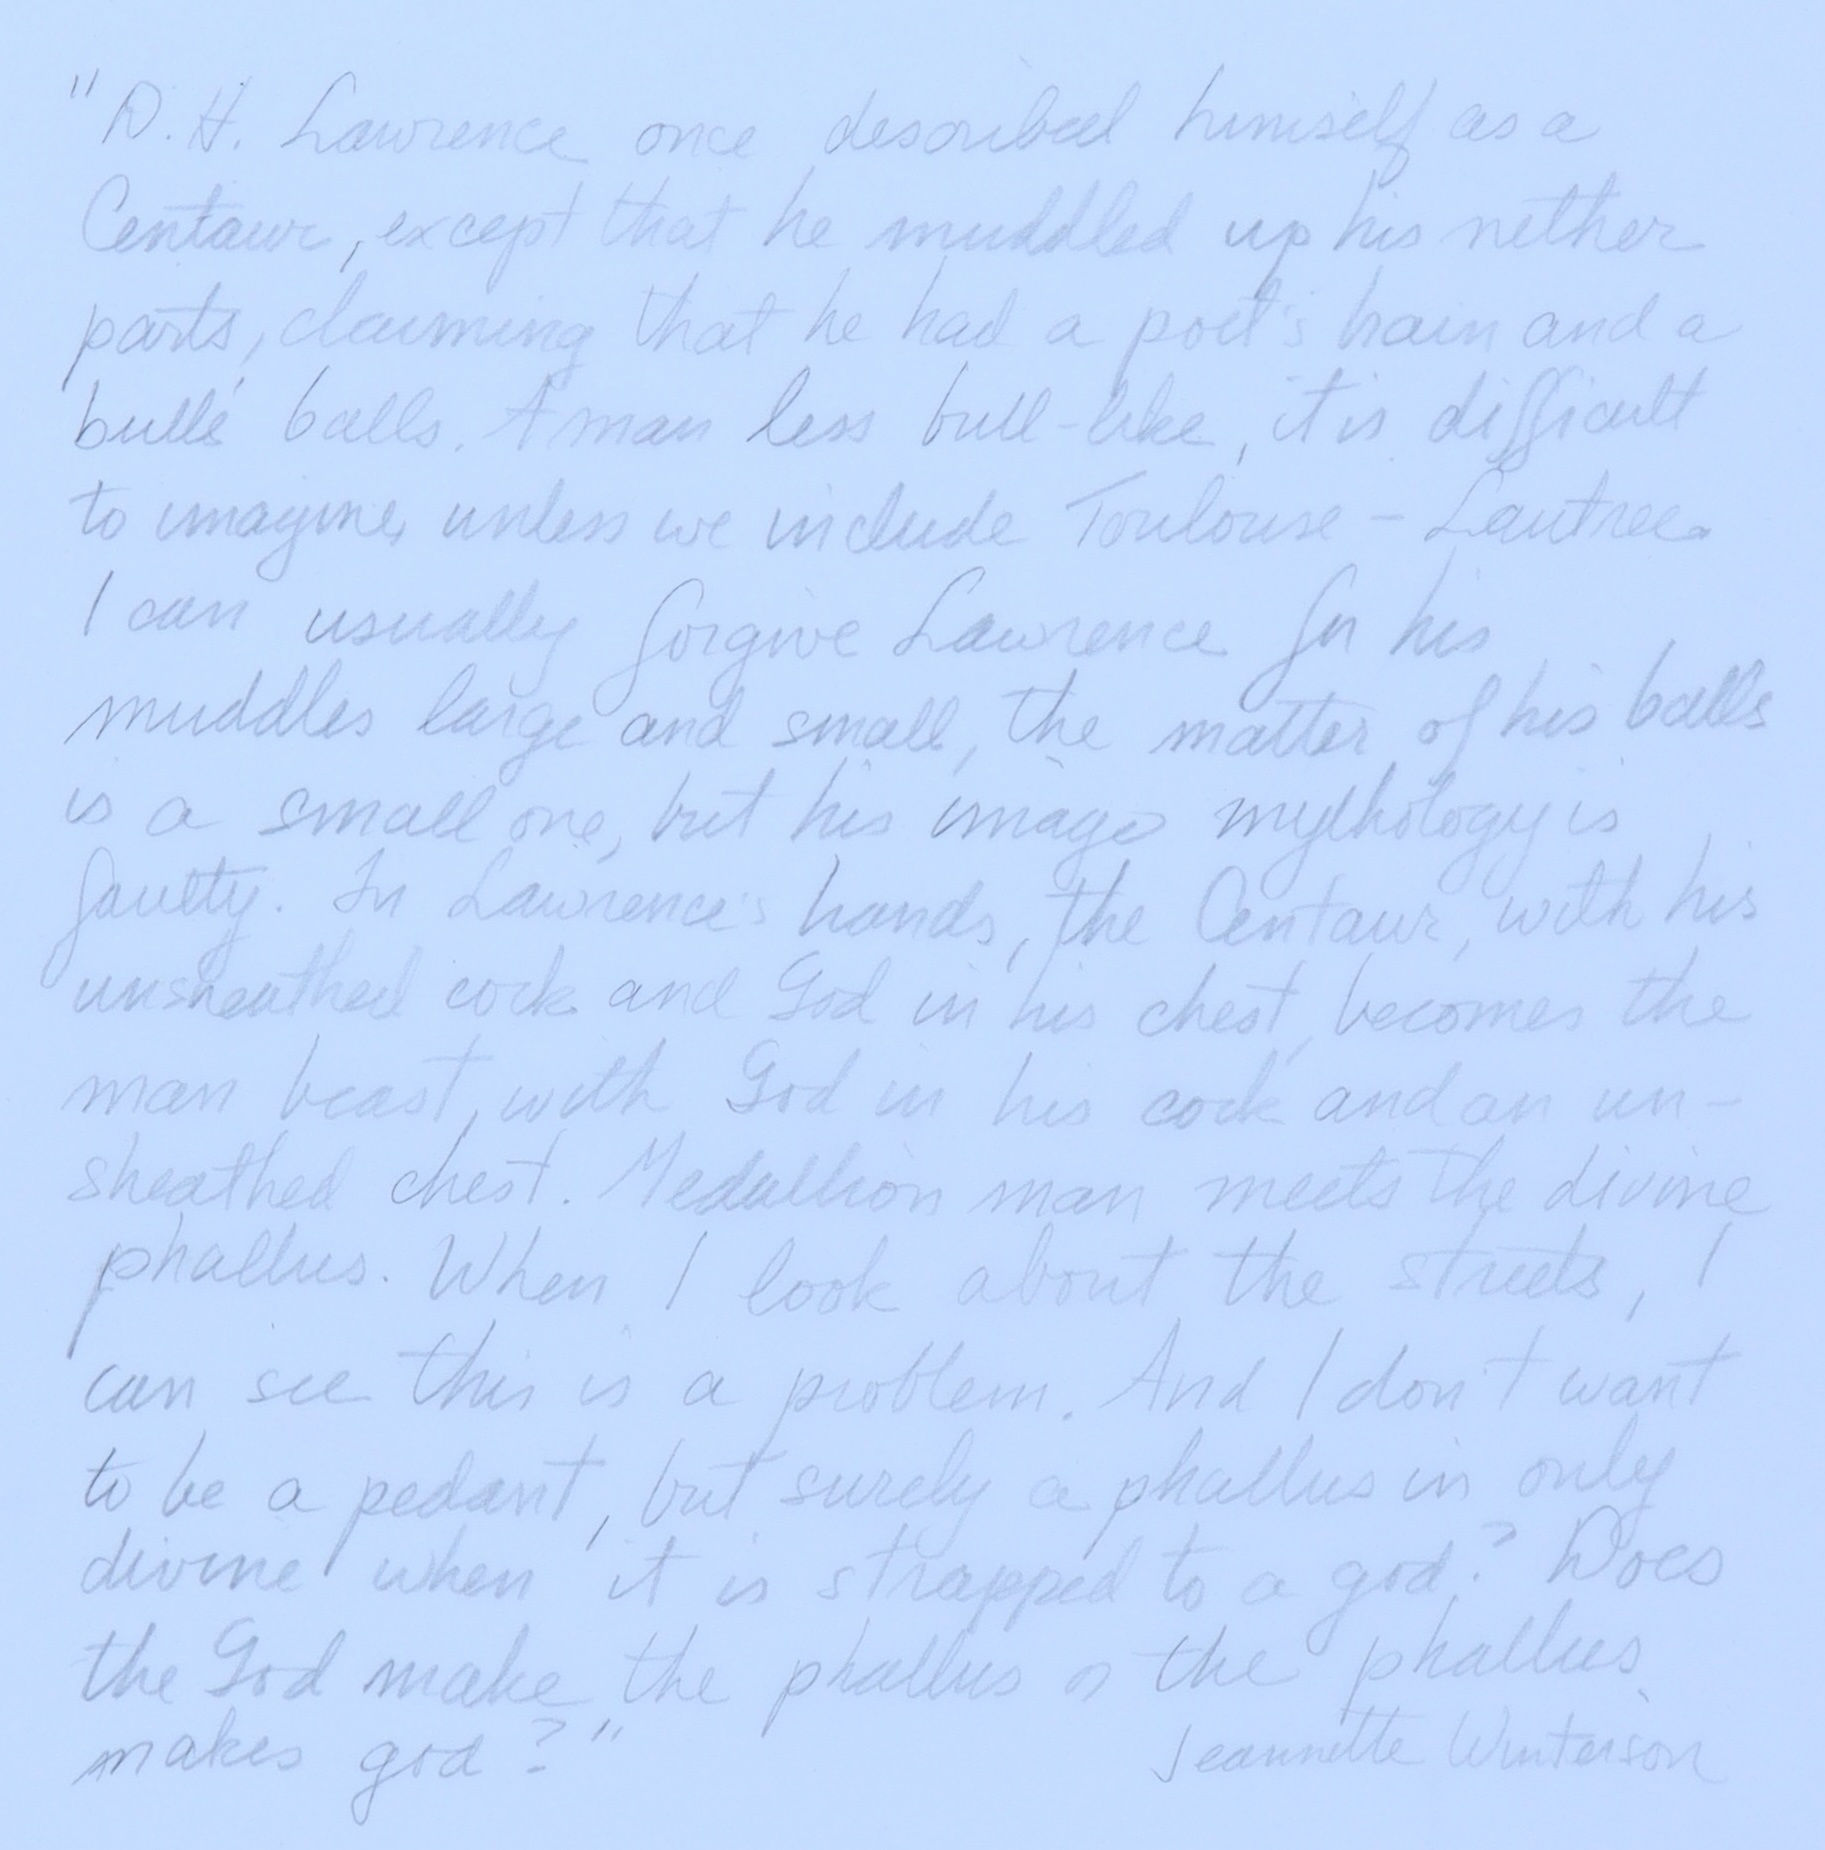 "D. H. Lawrence once described himself as a
Centaur, except that he muddled up his nether
parts, claiming that he had a poet's brain and a
bulls' balls. A man less bull-like, it is difficult
to imagine, unless we include Toulouse-Lautrec.
I can usually forgive Lawrence for his
muddles large and small, the matter of his balls
is a small one, but his imago mythology is
faulty. In Lawrence's hands, the Centaur, with his
unsheathed cock and God in his chest, becomes the
man beast, with God in his cock and an un-
sheathed chest. Medallion man meets the divine
phallus. When I look about the streets, I
can see this is a problem. And I don't want
to be a pedant, but surely a phallus is only
divine when it is strapped to a god? Does
the God make the phallus or the phallus
makes god?"
Jeannette Winterson